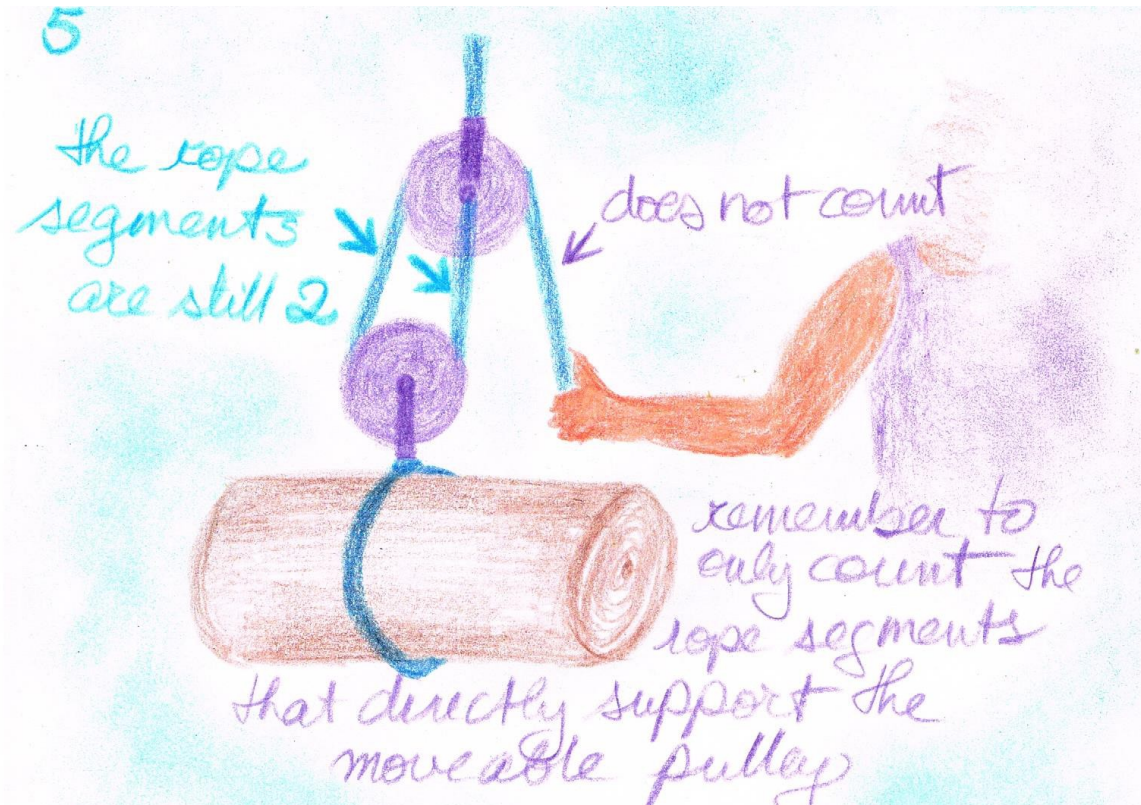 5
the rope
segments
are still 2
does not count
remember to
only count the
rope segments
that directly support the
moveable pulley